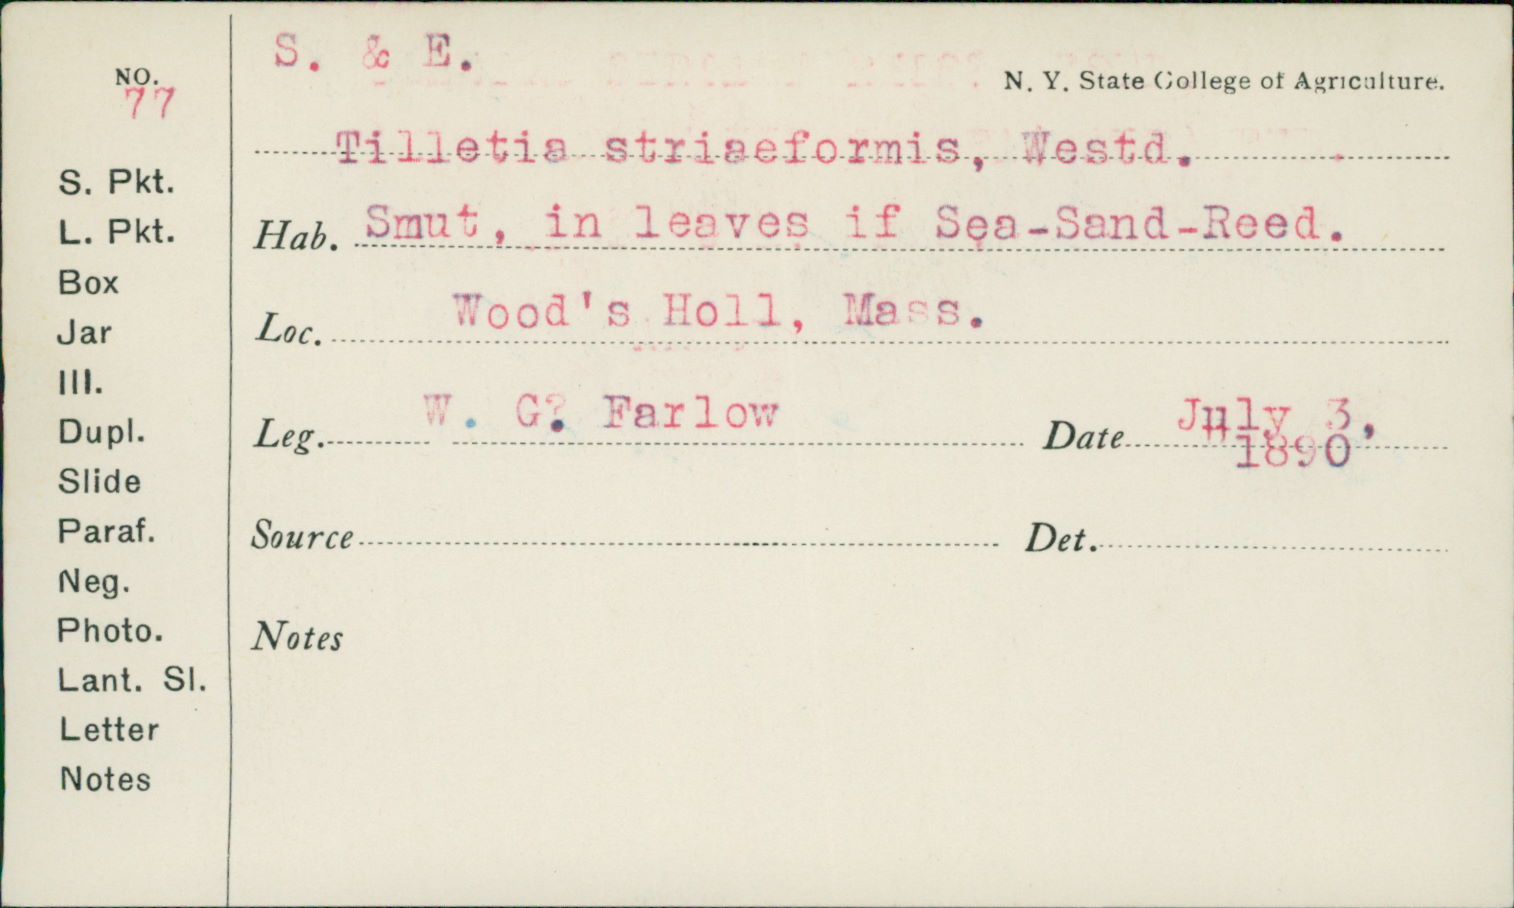 S. & E.
NO.
77
N. Y. State College of Agriculture.
Tilletia striaeformis, Westd.
S. Pkt.
L. Pkt.
Box
Jar
Ill.
Dupl.
Slide
Paraf.
Neg.
Photo.
Lant. Sl.
Letter
Notes
Hab. Smut, in leaves if Sea-Sand-Reed.
Loc. Wood's Holl, Mass.
Leg. W. G. Farlow Date July 3,
1890
Source Det.
Notes